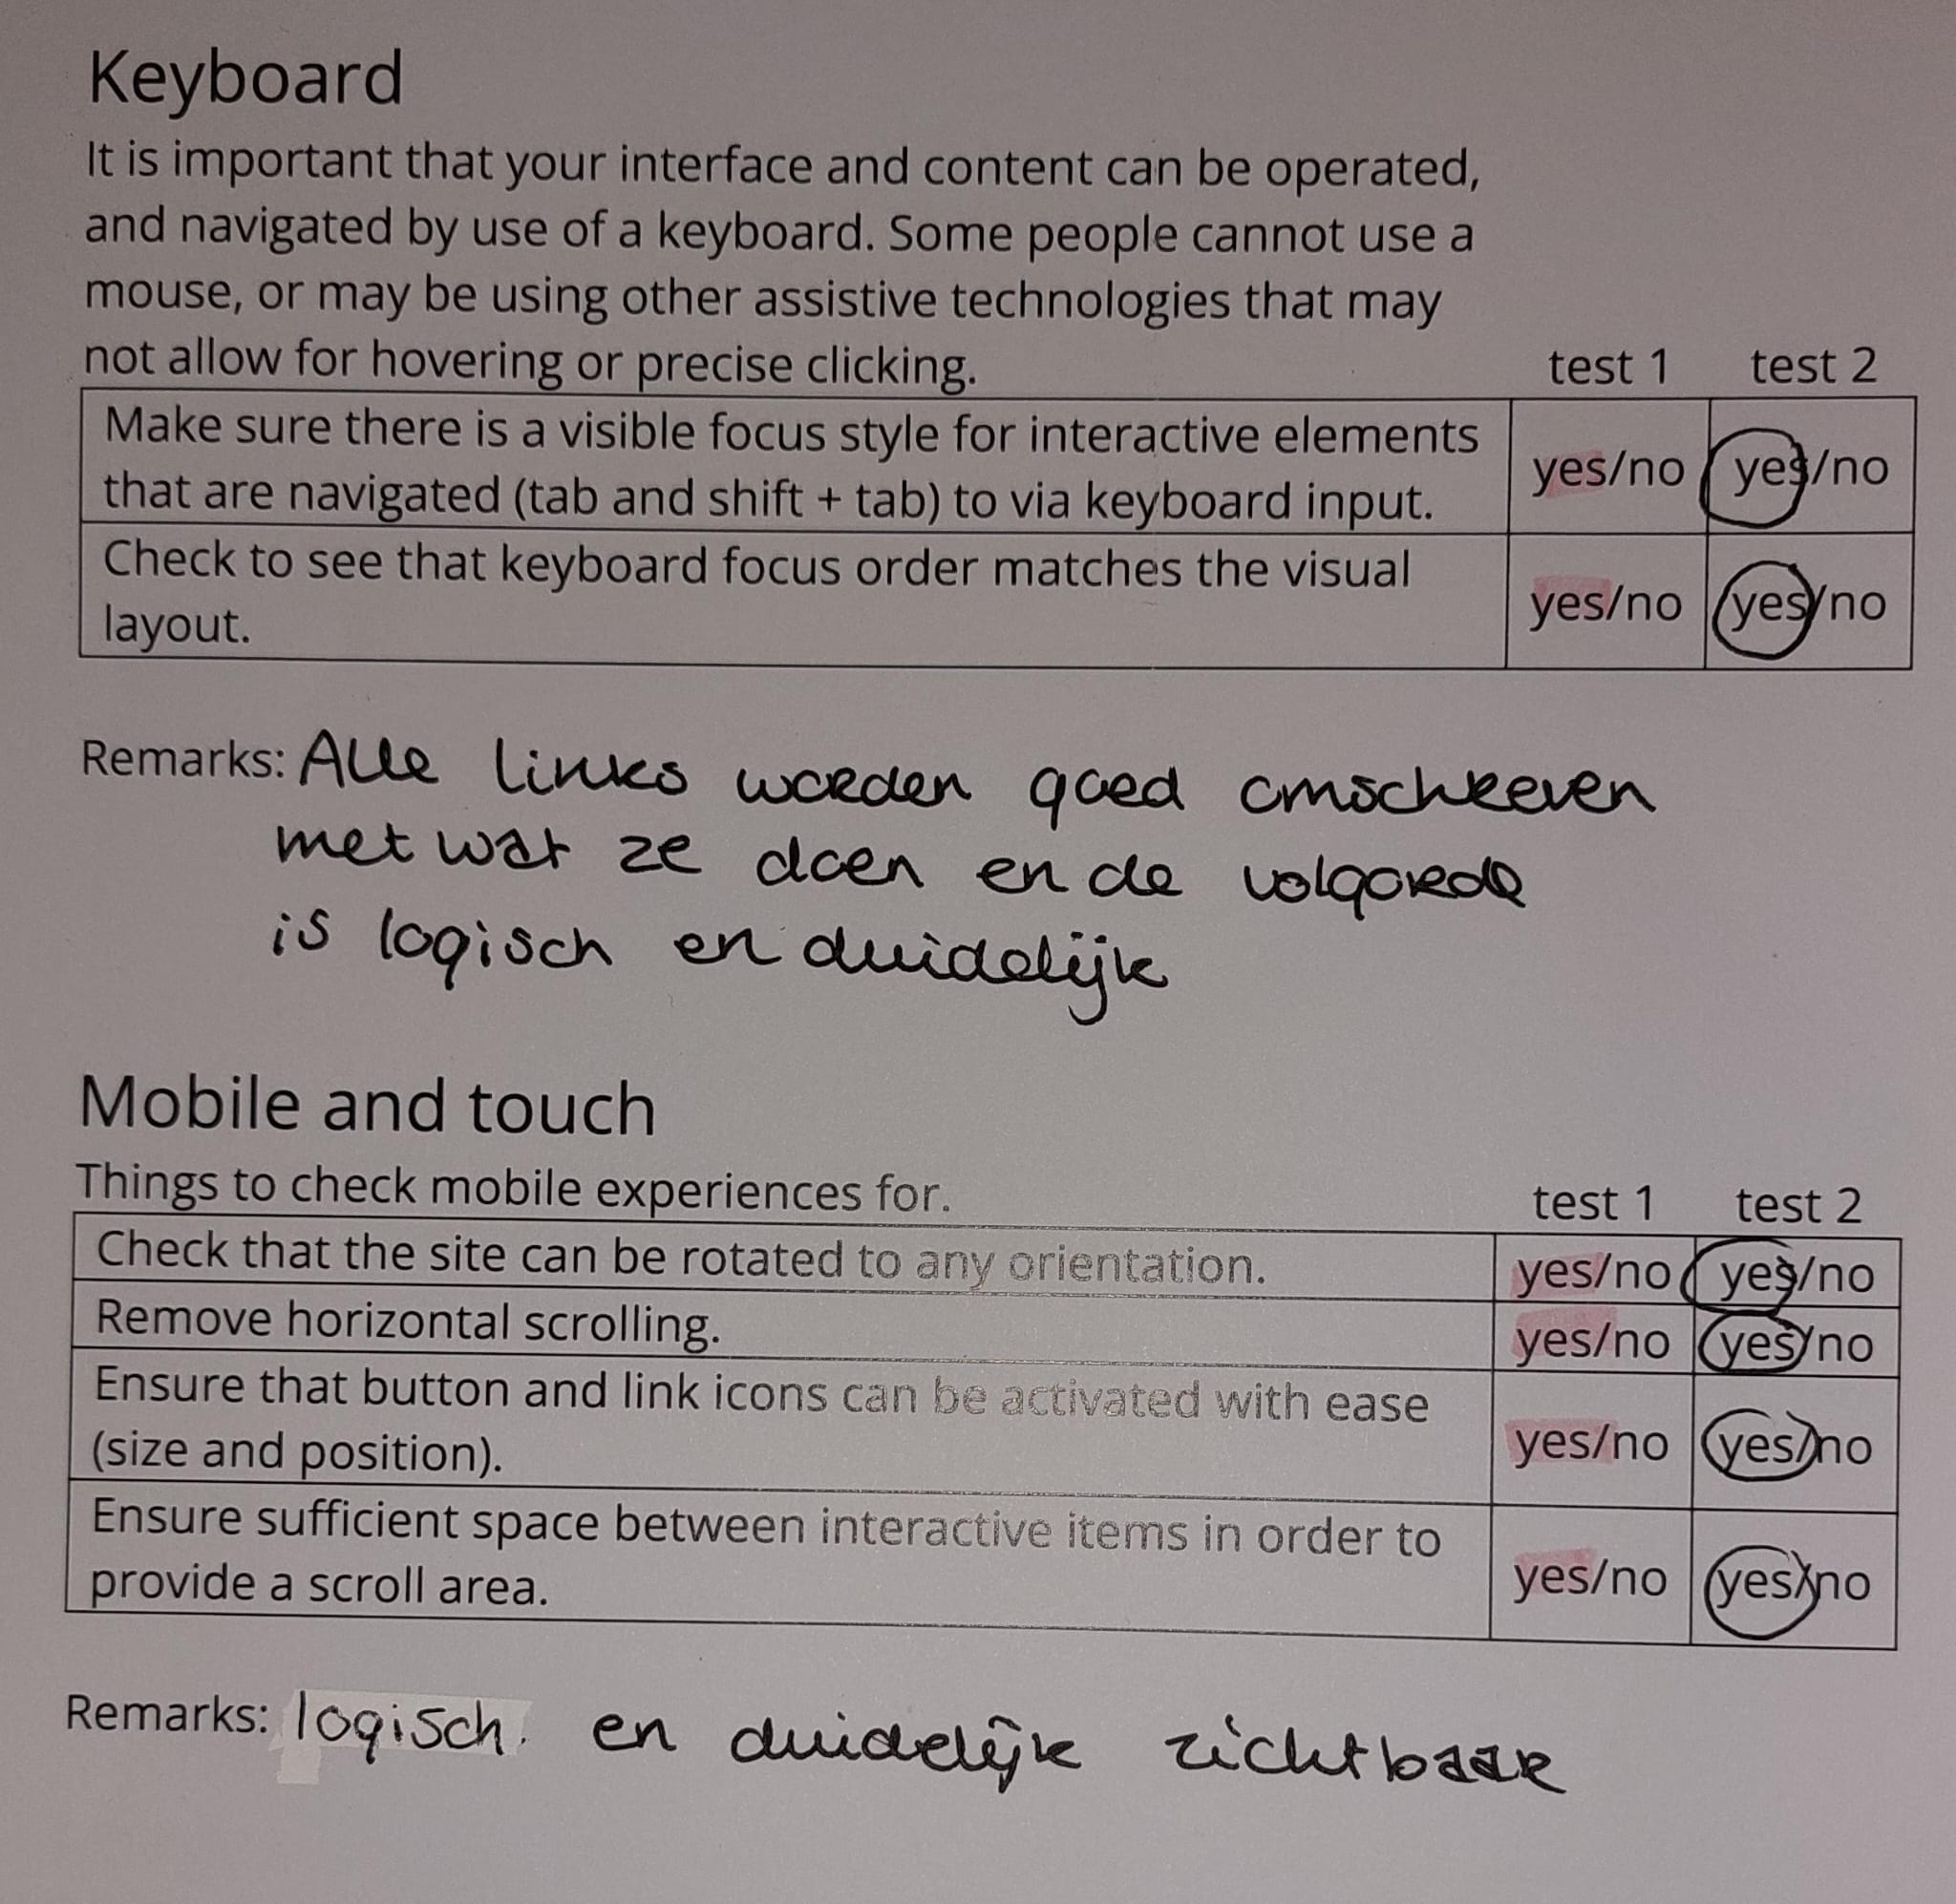 Keyboard
It is important that your interface and content can be operated,
and navigated by use of a keyboard. Some people cannot use a
mouse, or may be using other assistive technologies that may
not allow for hovering or precise clicking. test 1 test 2
Make sure there is a visible focus style for interactive elements
that are navigated (tab and shift + tab) to via keyboard input.
yes/no yes/no
Check to see that keyboard focus order matches the visual
layout.
yes/no yes/no
Remarks: Alle links worden goed omschreeven
met wat ze doen en de volgorede
is logisch en duidelijk
Mobile and touch
Things to check mobile experiences for. test 1 test 2
Check that the site can be rotated to any orientation. yes/no yes/no
Remove horizontal scrolling. yes/no yes/no
Ensure that button and link icons can be activated with ease
(size and position).
yes/no yes/no
Ensure sufficient space between interactive items in order to
provide a scroll area.
yes/no yes/no
Remarks: logisch. en duidelijk zichtbaar